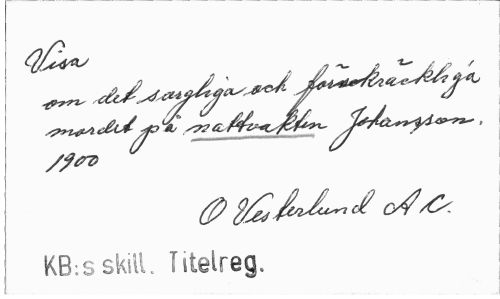 Visa
om det sorgliga och förskräckliga
mordet på nattvakten Johansson.
1900
O Vesterlund A C.
KB:s skill. Titelreg.